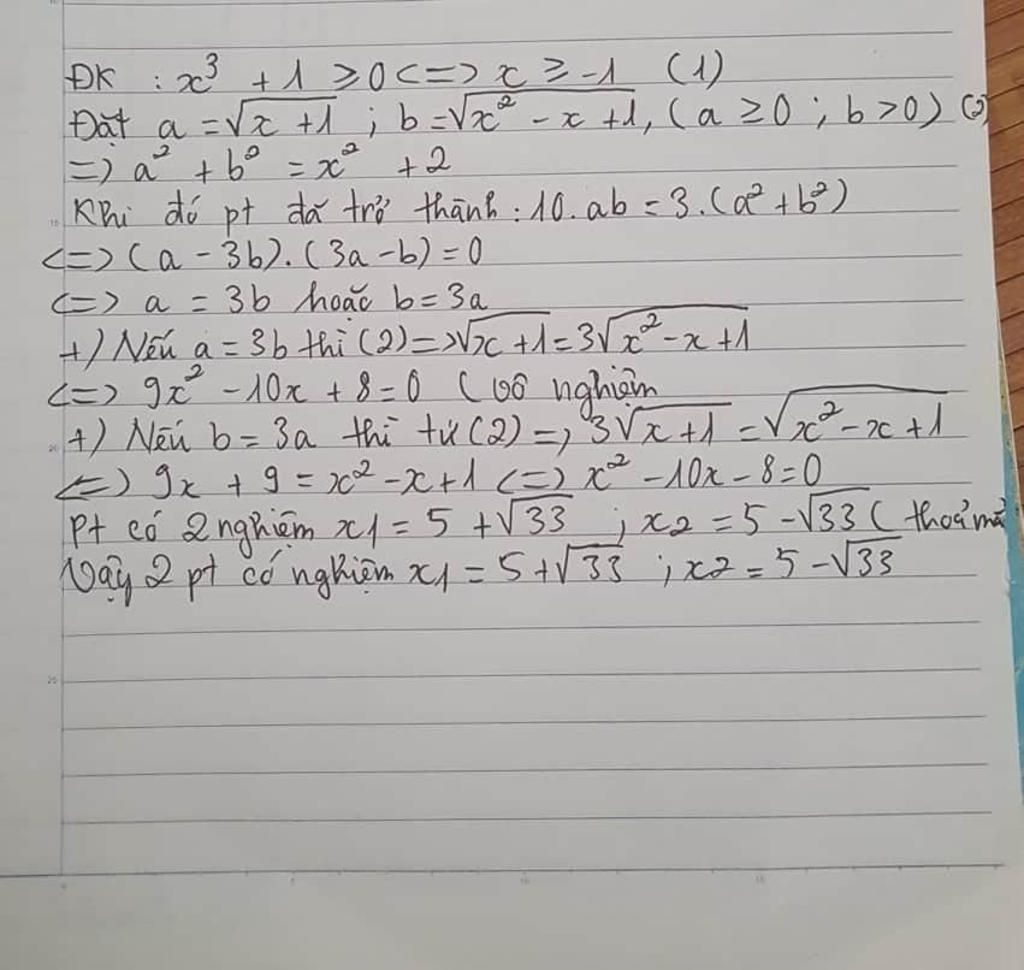 ĐK : x³ + 1 ≥ 0 <=> x ≥ -1 (1)
Đặt a = √(x + 1) ; b = √(x² - x + 1), (a ≥ 0 ; b > 0) (2)
=> a² + b² = x² + 2
Khi đó pt đã trở thành : 10. ab = 3.(a² + b²)
<=> (a - 3b). (3a - b) = 0
<=> a = 3b hoặc b = 3a
+) Nếu a = 3b thì (2) => √(x + 1) = 3√(x² - x + 1)
<=> 9x² - 10x + 8 = 0 (vô nghiệm
+) Nếu b = 3a thì từ (2) => 3√(x + 1) = √(x² - x + 1)
<=> 9x + 9 = x² - x + 1 <=> x² - 10x - 8 = 0
Pt có 2 nghiệm x1 = 5 + √33 ; x2 = 5 - √33 ( thoả mã
Vậy 2 pt có nghiệm x1 = 5 + √33 ; x2 = 5 - √33